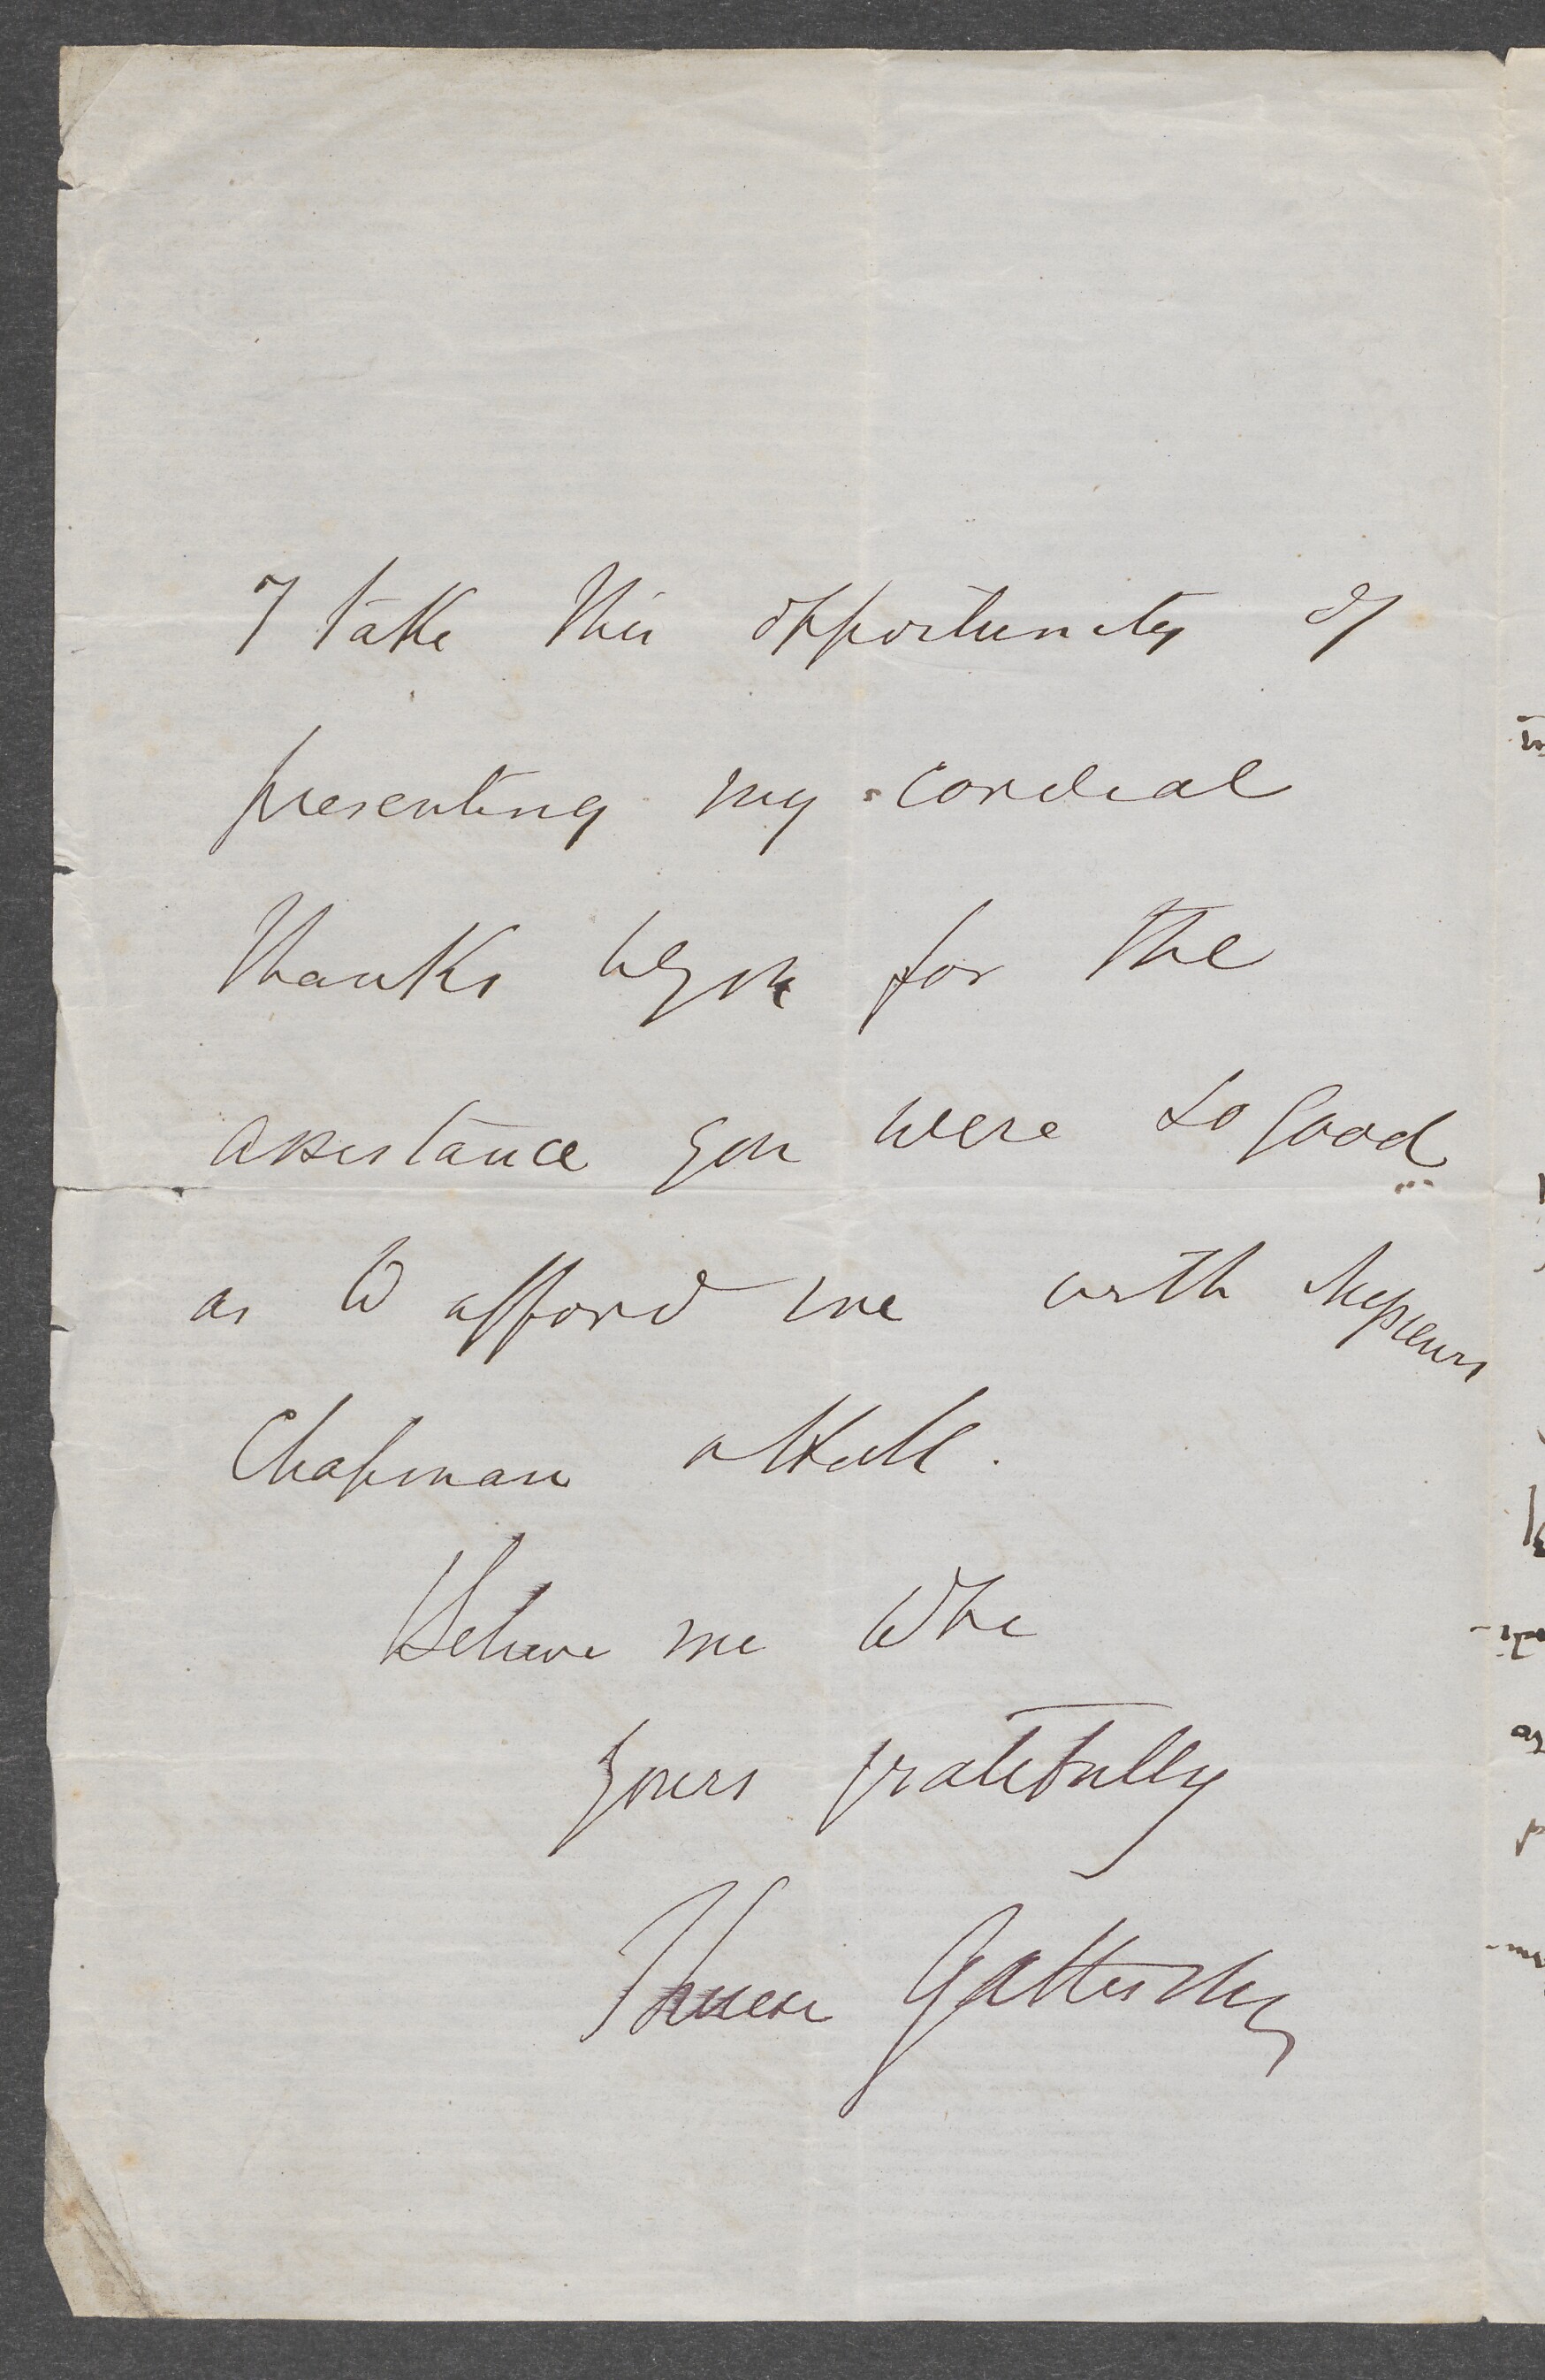 I take this opportunity of
presenting my cordial
thanks to you for the
assistance you were so good
as to afford me with Messieurs
Chapman & Hall.
Believe me to be
yours gratefully